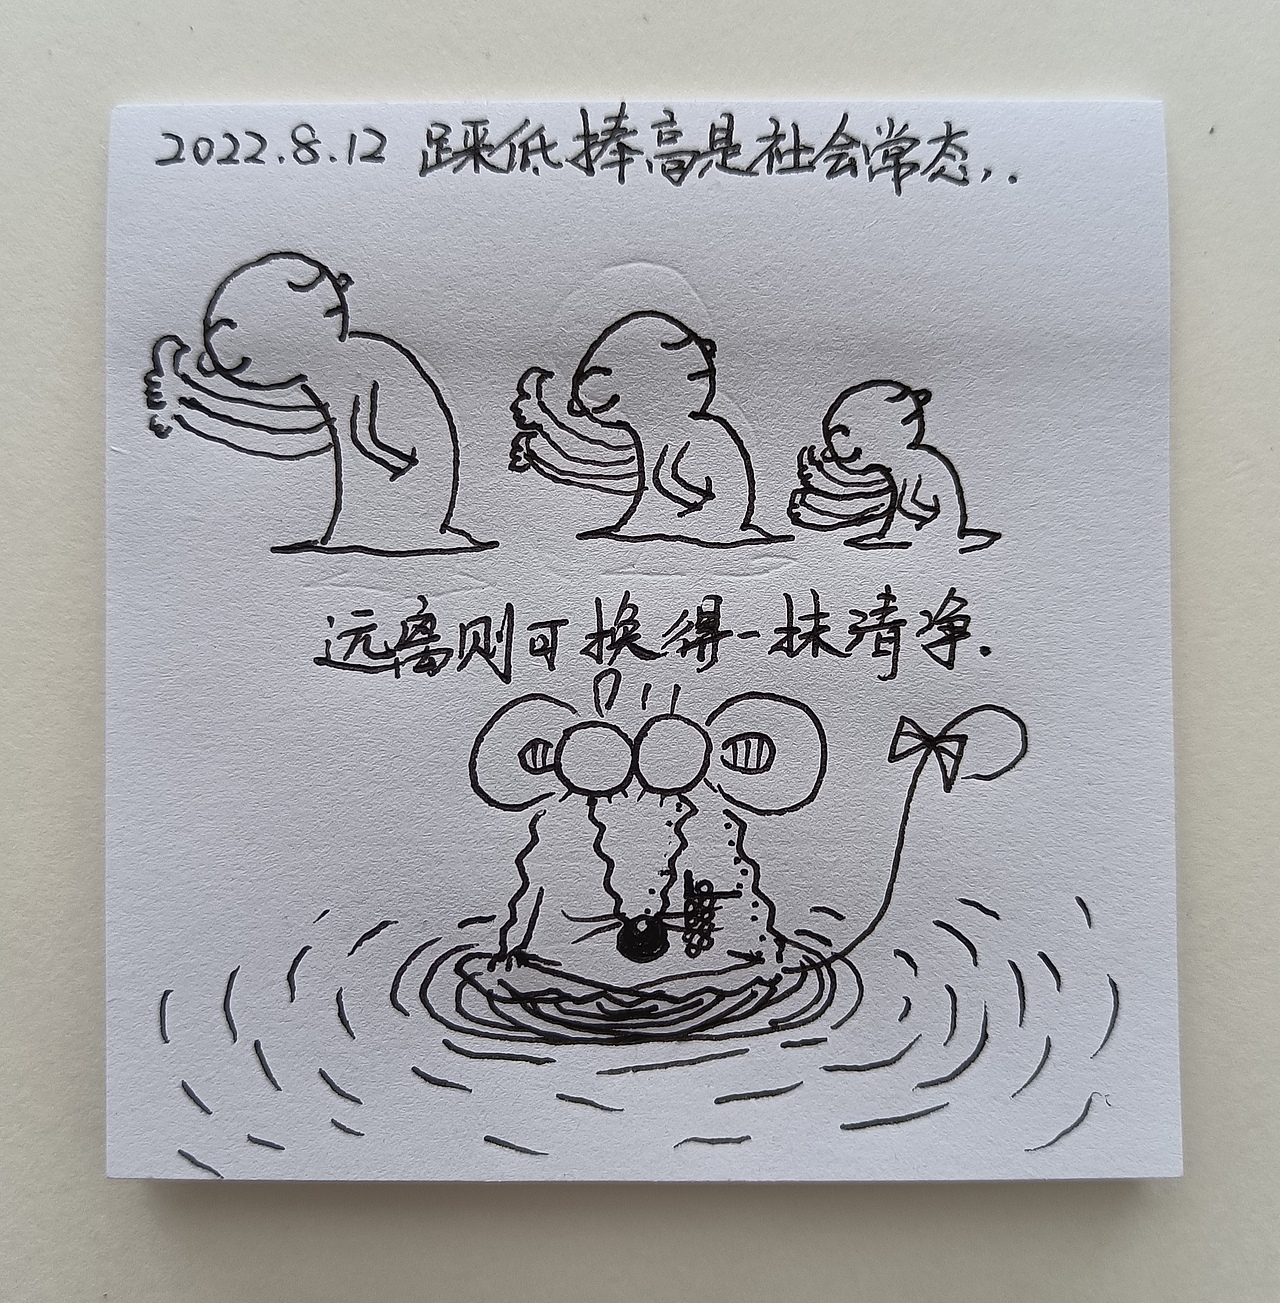 2022.8.12 踩低捧高是社会常态,..
远离则可换得一抹清净.